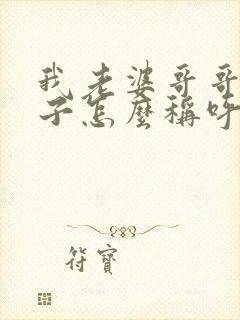 我老婆哥哥
子怎麼稱呼
符寶